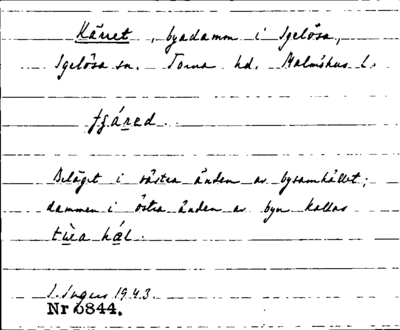 Kärret, byadamm i Igelösa,
Igelösa sn. Torna hd. Malmöhus l.
Beläget i västra änden av bysamhället;
dammen i östra änden av byn kallas
hál.
I. Ingers 1943.
Nr 6844.